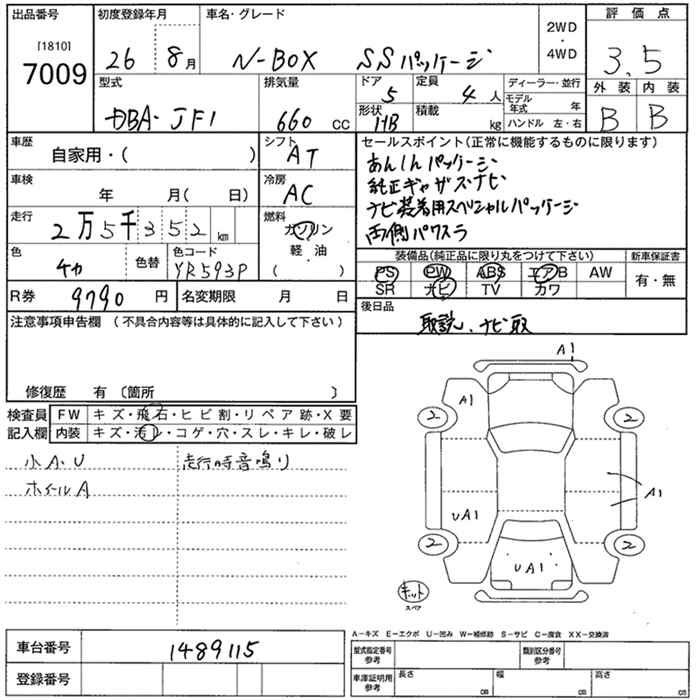 出品番号 初度登録年月 車名・グレード 2WD・4WD 評価点
[1810] 7009 26 8月 N-BOX SSパッケージ 3.5
型式 排気量 ドア 5 定員 4人 ディーラー・並行 外装 内装
DBA-JF1 660 CC 形状 HB 積載 kg モデル年式 年 B B
ハンドル 左・右
車歴 自家用・( ) シフト AT セールスポイント(正常に機能するものに限ります)
あんしんパッケージ
車検 年 月( 日) 冷房 AC 純正ギャザズナビ
ナビ装着用スペシャルパッケージ
走行 2万5千352km 燃料 ガソリン 両側パワスラ
軽・油
( )
色 色替 色コード YR593P 装備品(純正品に限り丸をつけて下さい) 新車保証書
PS PW ABS エアB AW 有・無
SR ナビ TV カワ
R券 9790円 名変期限 月 日 後日品
取説、ナビ取
注意事項申告欄 (不具合内容等は具体的に記入して下さい)
修復歴 有 (箇所 )
検査員 FW キズ・飛石・ヒビ割・リペア跡・X要
記入欄 内装 キズ・汚レ・コゲ・穴・スレ・キレ・破レ
小A・U 走行時音鳴り
ホイールA
A1
A1
2 2
A1
UA1
2 2
UA1
キット
スペア
A-キズ E-エクボ U-凹み W-補修跡 S-サビ C-腐食 XX-交換済
車台番号 1489115
型式指定番号 参考 類別区分番号 参考
登録番号
車庫証明用 参考 長さ cm 幅 cm 高さ cm